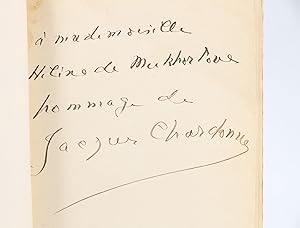 à mademoiselle
Hélène de
hommage de
Jacques Chardonne